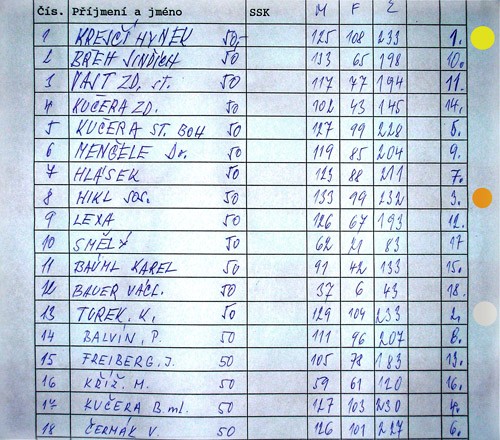 Čís. Příjmení a jméno SSK M F Σ
1 KREJČÍ HYNEK 50,- 125 108 233 1.
2 BŘEH JINDŘICH 50 133 65 198 10.
3 VAJT ZD. st. 50 117 77 194 11.
4 KUČERA ZD. 50 102 43 145 14.
5 KUČERA ST. BOH 50 127 99 228 5.
6 MENČELE Dr. 50 119 85 204 9.
7 HLÁSEK 50 123 88 211 7.
8 HIKL Jos. 50 133 99 232 3.
9 LEXA 50 126 67 193 12.
10 SMĚLÝ 50 62 21 83 17
11 BAÜML KAREL 50 91 42 133 15.
12 BAUER VÁCL. 50 37 6 43 18.
13 TUREK. K. 50 129 104 233 2.
14 BALVÍN, P. 50 111 96 207 8.
15 FREIBERG, J. 50 105 78 183 13.
16 KŘÍŽ, M. 50 59 61 120 16.
17 KUČERA B. ml. 50 127 103 230 4.
18 ČERMÁK V. 50 126 101 227 6.